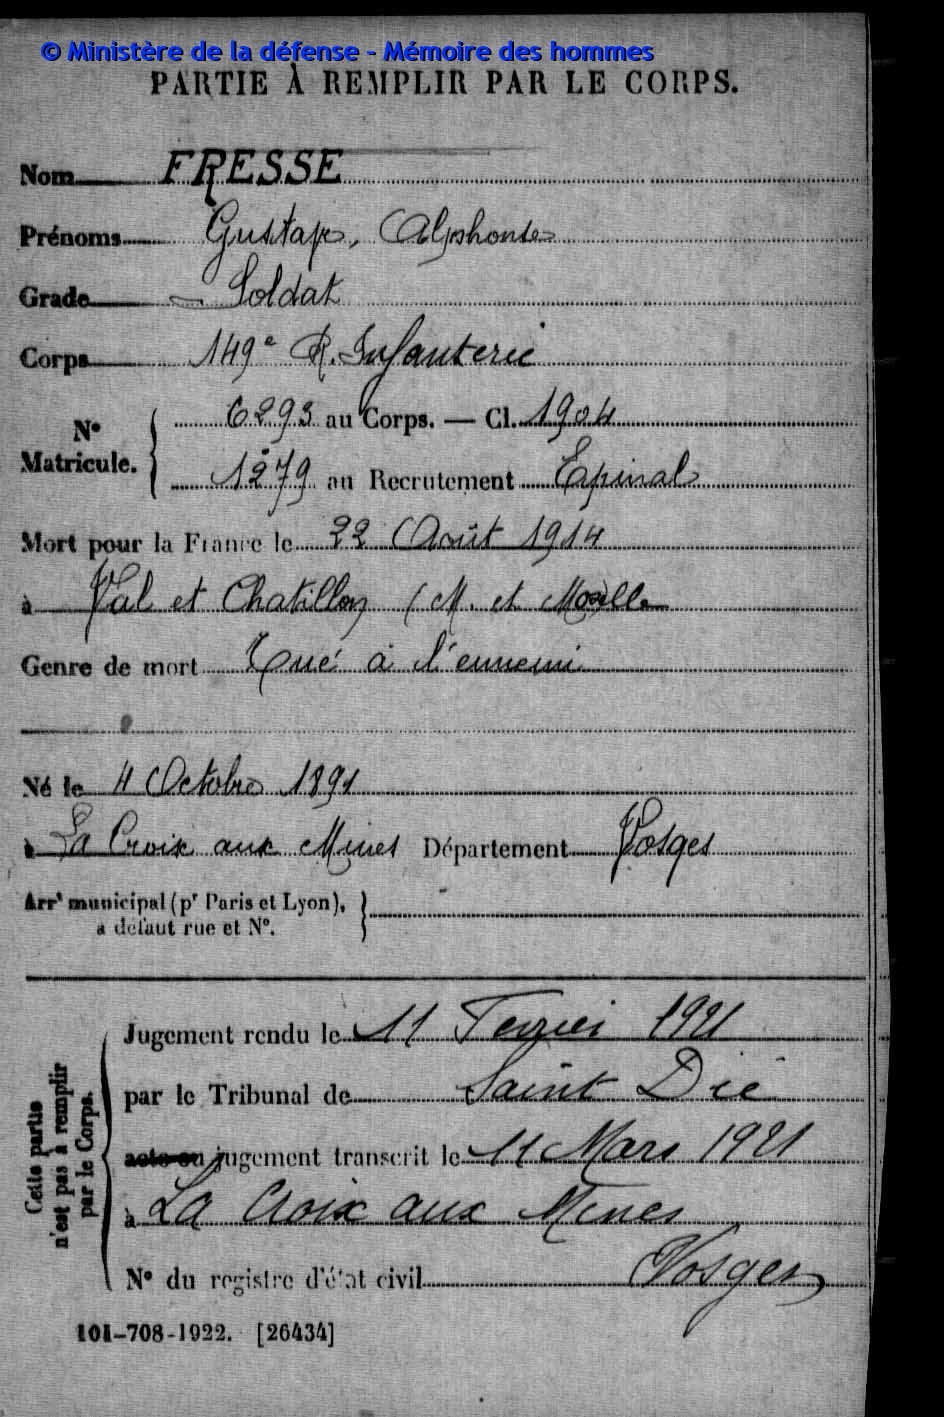 © Ministère de la défense - Mémoire des hommes
PARTIE À REMPLIR PAR LE CORPS.
Nom FRESSE
Prénoms Gustave, Alphonse
Grade Soldat
Corps 149e R. Infanterie
N° Matricule. 6293 au Corps. — Cl. 1904
1279 au Recrutement Epinal
Mort pour la France le 22 Août 1914
à Val et Chatillon (M. et Moselle
Genre de mort Tué à l'ennemi
Né le 4 Octobre 1891
à La Croix aux Mines Département Vosges
Arrt municipal (pr Paris et Lyon),
à défaut rue et N°.
Cette partie
n'est pas à remplir
par le Corps.
Jugement rendu le 11 Fevrier 1921
par le Tribunal de Saint Dié
acte ou jugement transcrit le 11 Mars 1921
à La Croix aux Mines
N° du registre d'état civil Vosges
101-708-1922. [26434]